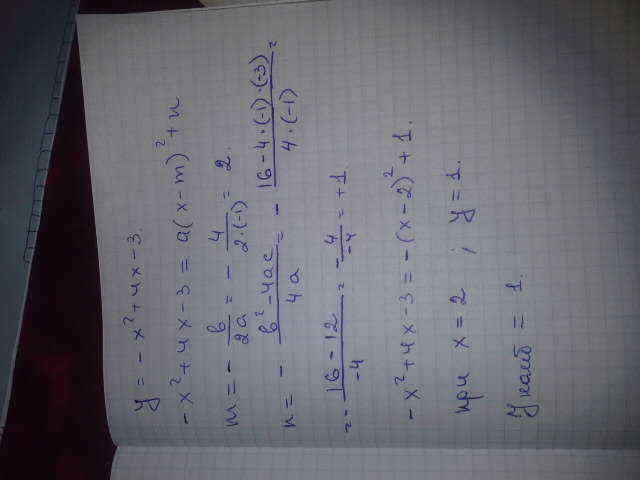 y = - x² + 4x - 3.
- x² + 4x - 3 = a(x - m)² + n
m = - b/2a = - 4/2·(-1) = 2.
n = - b² - 4ac/4a = - 16 - 4·(-1)·(-3)/4·(-1) =
= - 16 - 12/-4 = - 4/-4 = +1
- x² + 4x - 3 = -(x - 2)² + 1.
при x = 2 ; y = 1.
y наиб = 1.